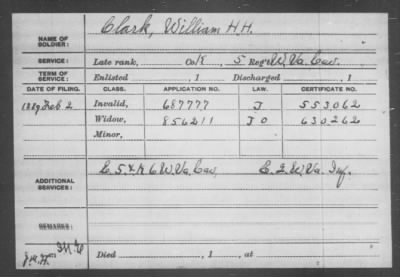 NAME OF SOLDIER: Clark, William H.H.
SERVICE: Late rank, Co K, 5 Reg't W. Va. Cav.
TERM OF SERVICE: Enlisted , 1 Discharged , 1
DATE OF FILING. CLASS. APPLICATION NO. LAW. CERTIFICATE NO.
1889 Feb 2 Invalid, 687777 J 553062
Widow, 856211 J O 630262
Minor,
ADDITIONAL SERVICES: C. 5. & K 6 W. Va. Cav, E. 2 W. Va. Inf.
REMARKS:
Died , 1 , at